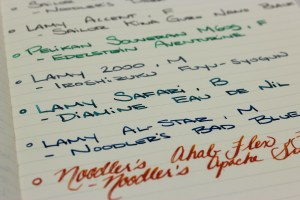 - Noodler's
○ Lamy Accent, F
- Sailor Kiwa Guro Nano Black
○ Pelikan Souverän M605, F
- Edelstein Aventurine
○ Lamy 2000, M
- Iroshizuku Fuyu-syogun
○ Lamy Safari, B
- Diamine Eau de Nil
○ Lamy Al-Star, M
- Noodler's Bad Blue
○ Noodler's Ahab Flex
- Noodler's Apache